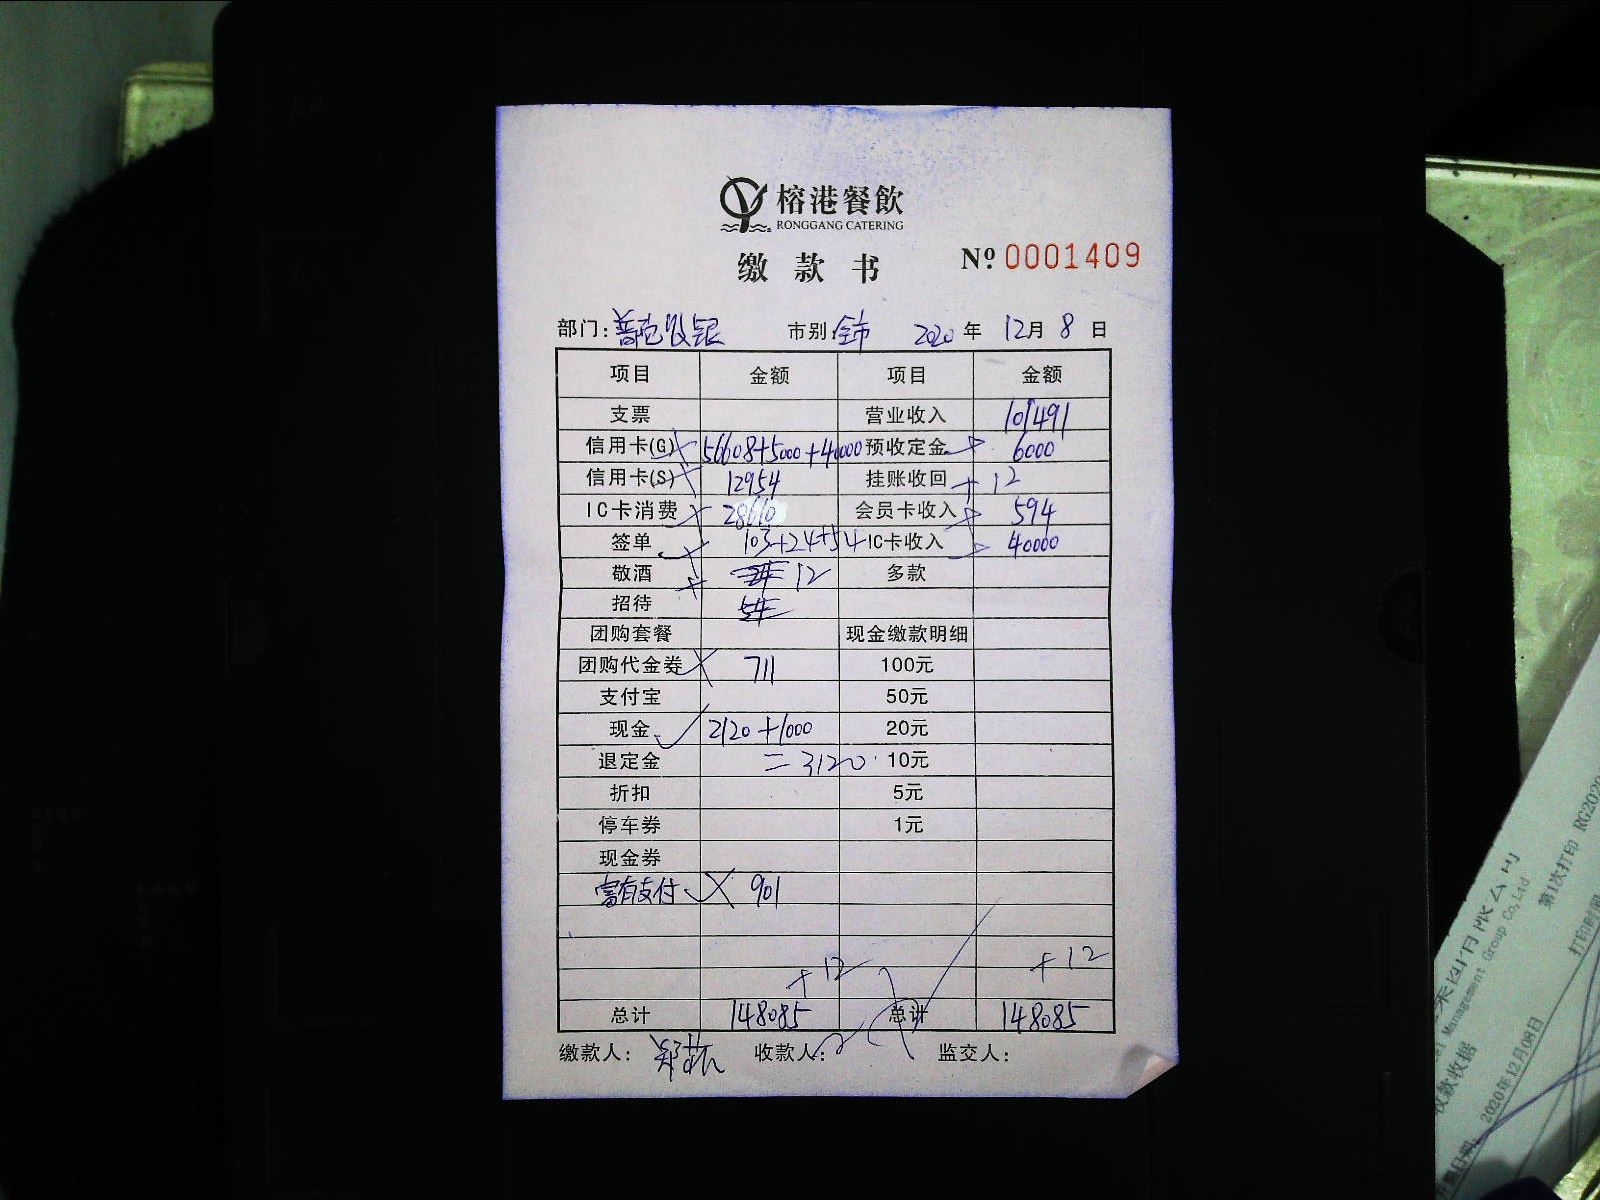 榕港餐飲
RONGGANG CATERING
缴款书 Nº 0001409
部门: 市别: 全市 2020年12月8日
项目 金额 项目 金额
支票 营业收入 101491
信用卡(G) 56608+5000+40000 预收定金 6000
信用卡(S) 12954 挂账收回 +12
IC卡消费 28610 会员卡收入 594
签单 103+24+54 IC卡收入 40000
敬酒 12 多款
招待
团购套餐 现金缴款明细
团购代金券 711 100元
支付宝 50元
现金 2120+1000 20元
退定金 =3120 10元
折扣 5元
停车券 1元
现金券
富有支付 901
+12 +12
总计 148085 总计 148085
缴款人: 收款人: 监交人:
Management Group Co,Ltd
收款收据 第1次打印 RG2020
2020年12月08日 打印时间